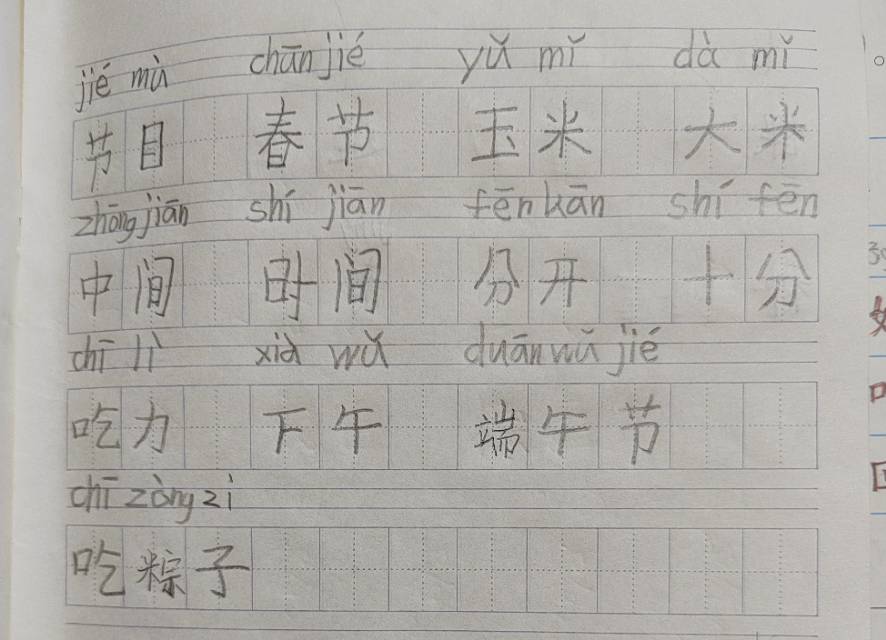 jié mù chān jié yǔ mǐ dà mǐ
节目 春节 玉米 大米
zhōng jiān shí jiān fēn kān shí fēn
中间 时间 分开 十分
chī lì xià wǔ duān wǔ jié
吃力 下午 端午节
chī zòng zi
吃粽子